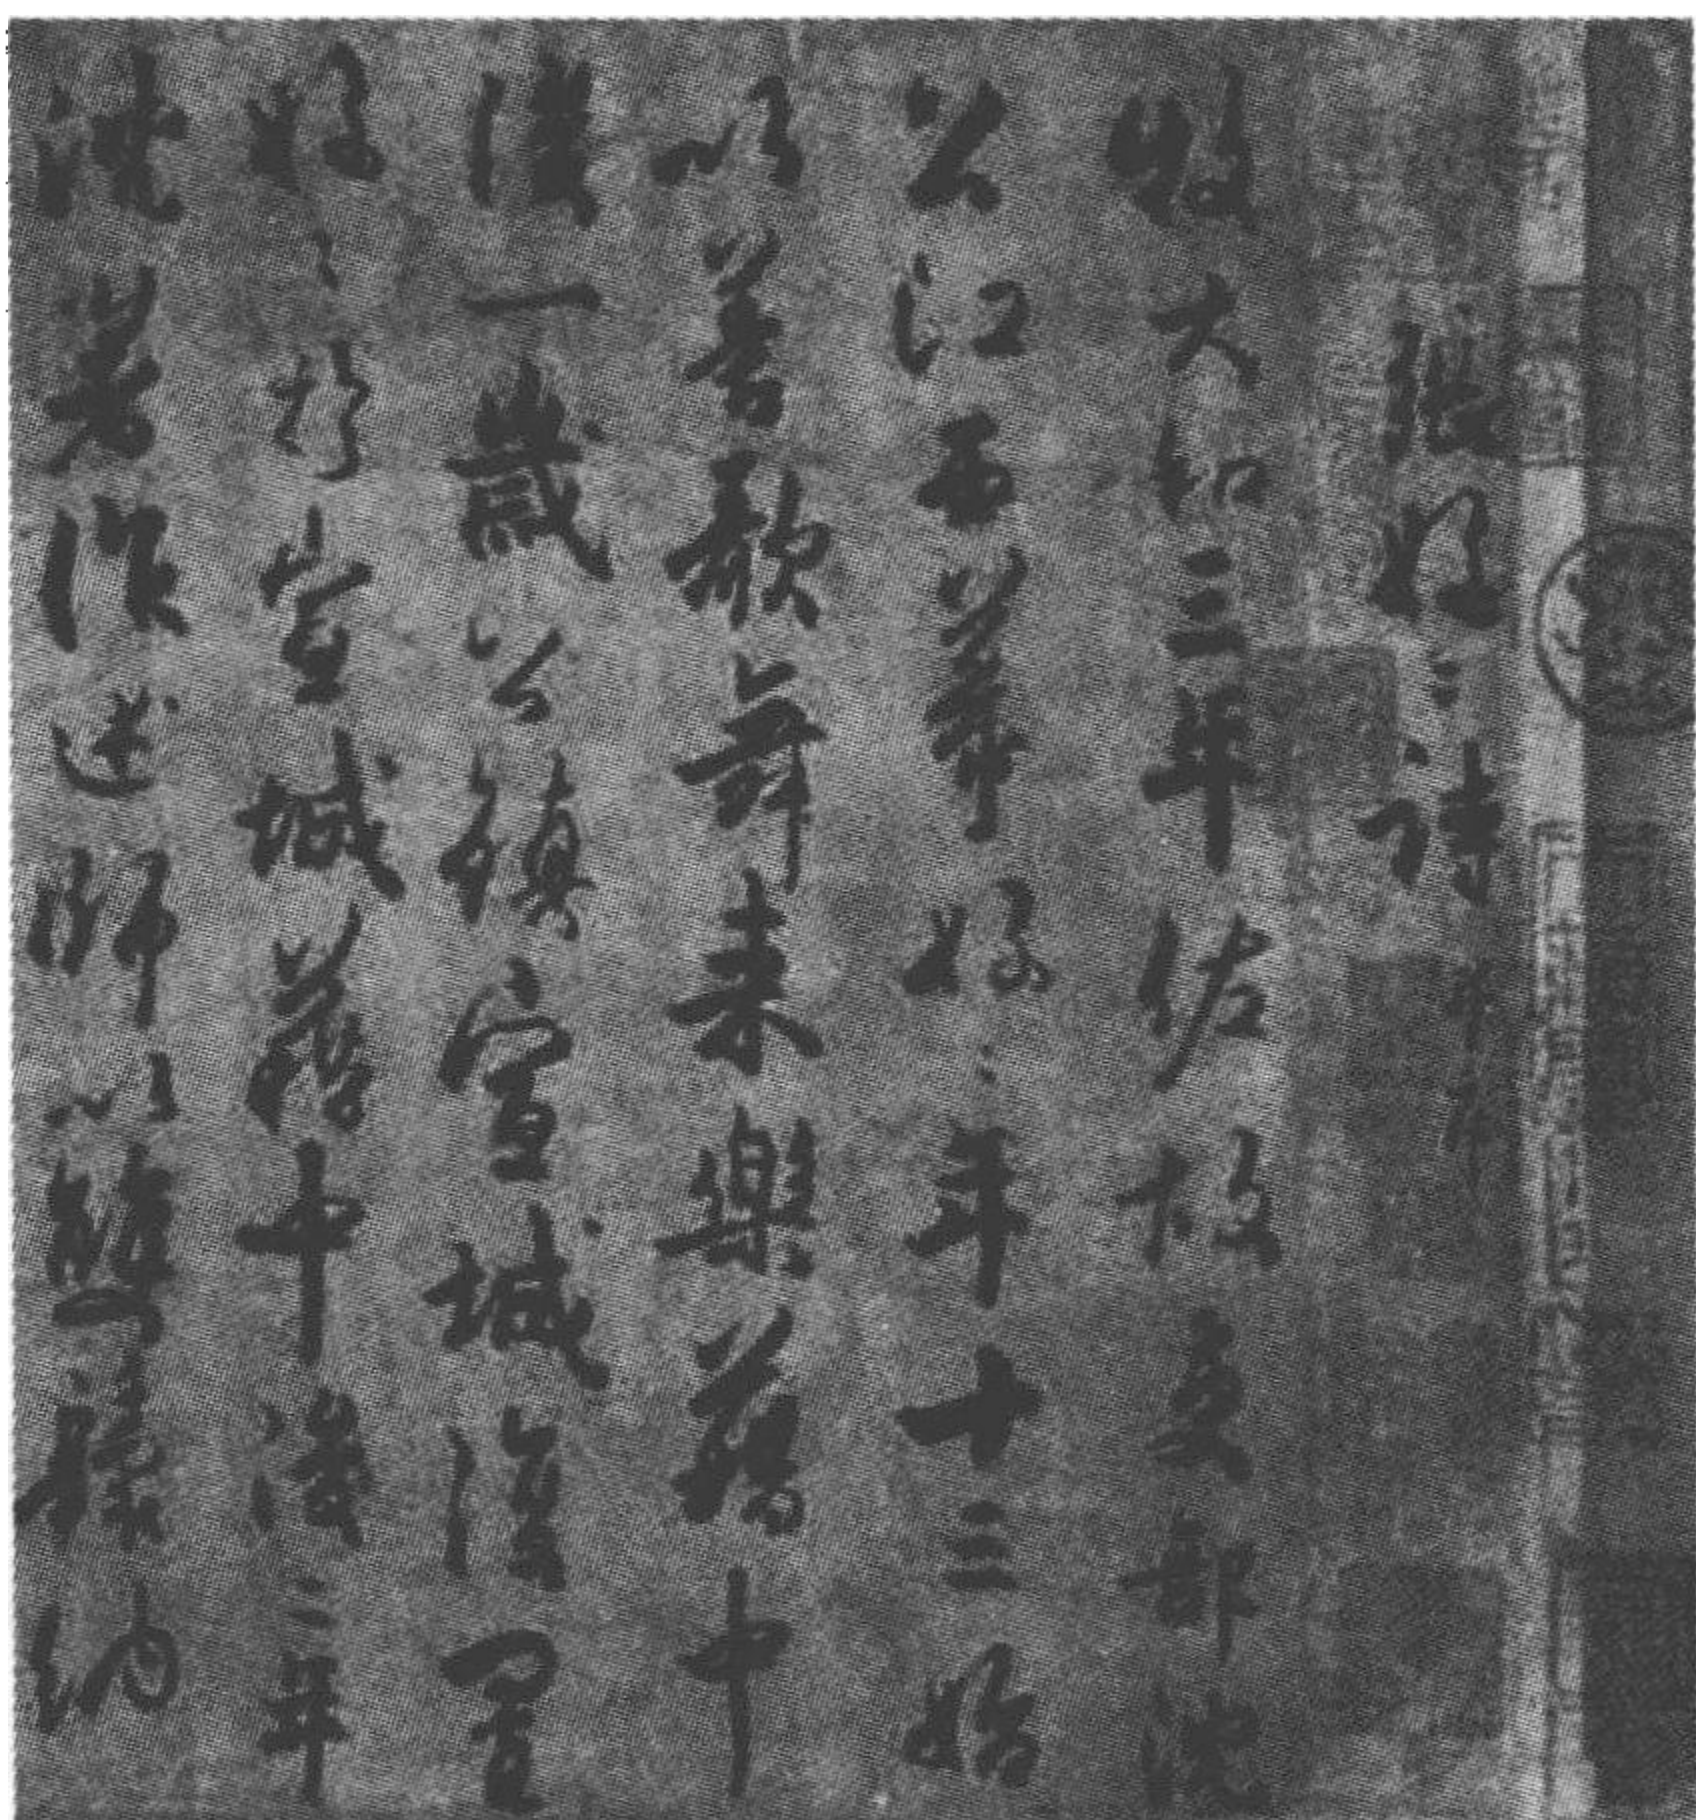 張好好詩
牧大和三年佐故吏部沈
公江西幕好好年十三始
以善歌舞来樂籍中
後一歲公鎮宣城復置
好好於宣城籍中後二年
沈著作述師以雙鬟納